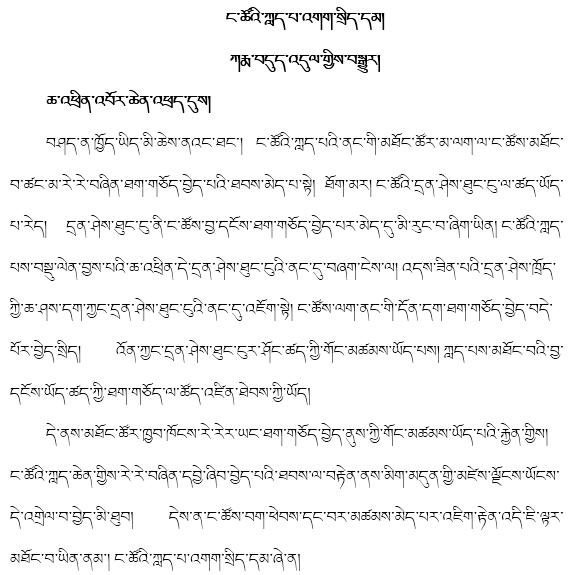 ང་ཚོའི་ཀླད་པ་འགག་སྲིད་དམ།
ཀརྨ་བདུད་འདུལ་གྱིས་བསྒྱུར།
ཆ་འཕྲིན་འབོར་ཆེན་འཕྲད་དུས།
བཤད་ན་ཁྱོད་ཡིད་མི་ཆེས་ནའང་ཐང་། ང་ཚོའི་ཀླད་པའི་ནང་གི་མཐོང་ཚོར་མ་ལག་ལ་ང་ཚོས་མཐོང་
བ་ཚང་མ་རེ་རེ་བཞིན་ཐག་གཅོད་བྱེད་པའི་ཐབས་མེད་པ་སྟེ། ཐོག་མར། ང་ཚོའི་དྲན་ཤེས་ཐུང་ངུ་ལ་ཚད་ཡོད་
པ་རེད། དྲན་ཤེས་ཐུང་ངུ་ནི་ང་ཚོས་བྱ་དངོས་ཐག་གཅོད་བྱེད་པར་མེད་དུ་མི་རུང་བ་ཞིག་ཡིན། ང་ཚོའི་ཀླད་
པས་བསྡུ་ལེན་བྱས་པའི་ཆ་འཕྲིན་དེ་དྲན་ཤེས་ཐུང་ངུའི་ནང་དུ་བཞག་ངེས་ལ། འདས་ཟིན་པའི་དྲན་ཤེས་ཁྲོད་
ཀྱི་ཆ་ཤས་དག་ཀྱང་དྲན་ཤེས་ཐུང་ངུའི་ནང་དུ་འཇོག་སྟེ། ང་ཚོས་ལག་ནང་གི་དོན་དག་ཐག་གཅོད་བྱེད་བདེ་
པོར་བྱེད་སྲིད། འོན་ཀྱང་དྲན་ཤེས་ཐུང་ངུར་ཤོང་ཚད་ཀྱི་གོང་མཚམས་ཡོད་པས། ཀླད་པས་མཐོང་བའི་བྱ་
དངོས་ཡོད་ཚད་ཀྱི་ཐག་གཅོད་ལ་ཚོད་འཛིན་ཐེབས་ཀྱི་ཡོད།
དེ་ནས་མཐོང་ཚོར་ཁྱབ་ཁོངས་རེ་རེར་ཡང་ཐག་གཅོད་བྱེད་ནུས་ཀྱི་གོང་མཚམས་ཡོད་པའི་རྐྱེན་གྱིས།
ང་ཚོའི་ཀླད་ཆེན་གྱིས་རེ་རེ་བཞིན་དབྱེ་ཞིབ་བྱེད་པའི་ཐབས་ལ་བརྟེན་ནས་མིག་མདུན་གྱི་མཛེས་ལྗོངས་ཡོངས་
དེ་འགྲེལ་བ་བྱེད་མི་ཐུབ། དེས་ན་ང་ཚོས་བག་ཕེབས་དང་བར་མཚམས་མེད་པར་འཇིག་རྟེན་འདི་ཇི་ལྟར་
མཐོང་བ་ཡིན་ནམ་། ང་ཚོའི་ཀླད་པ་འགག་སྲིད་དམ་ཞེ་ན།